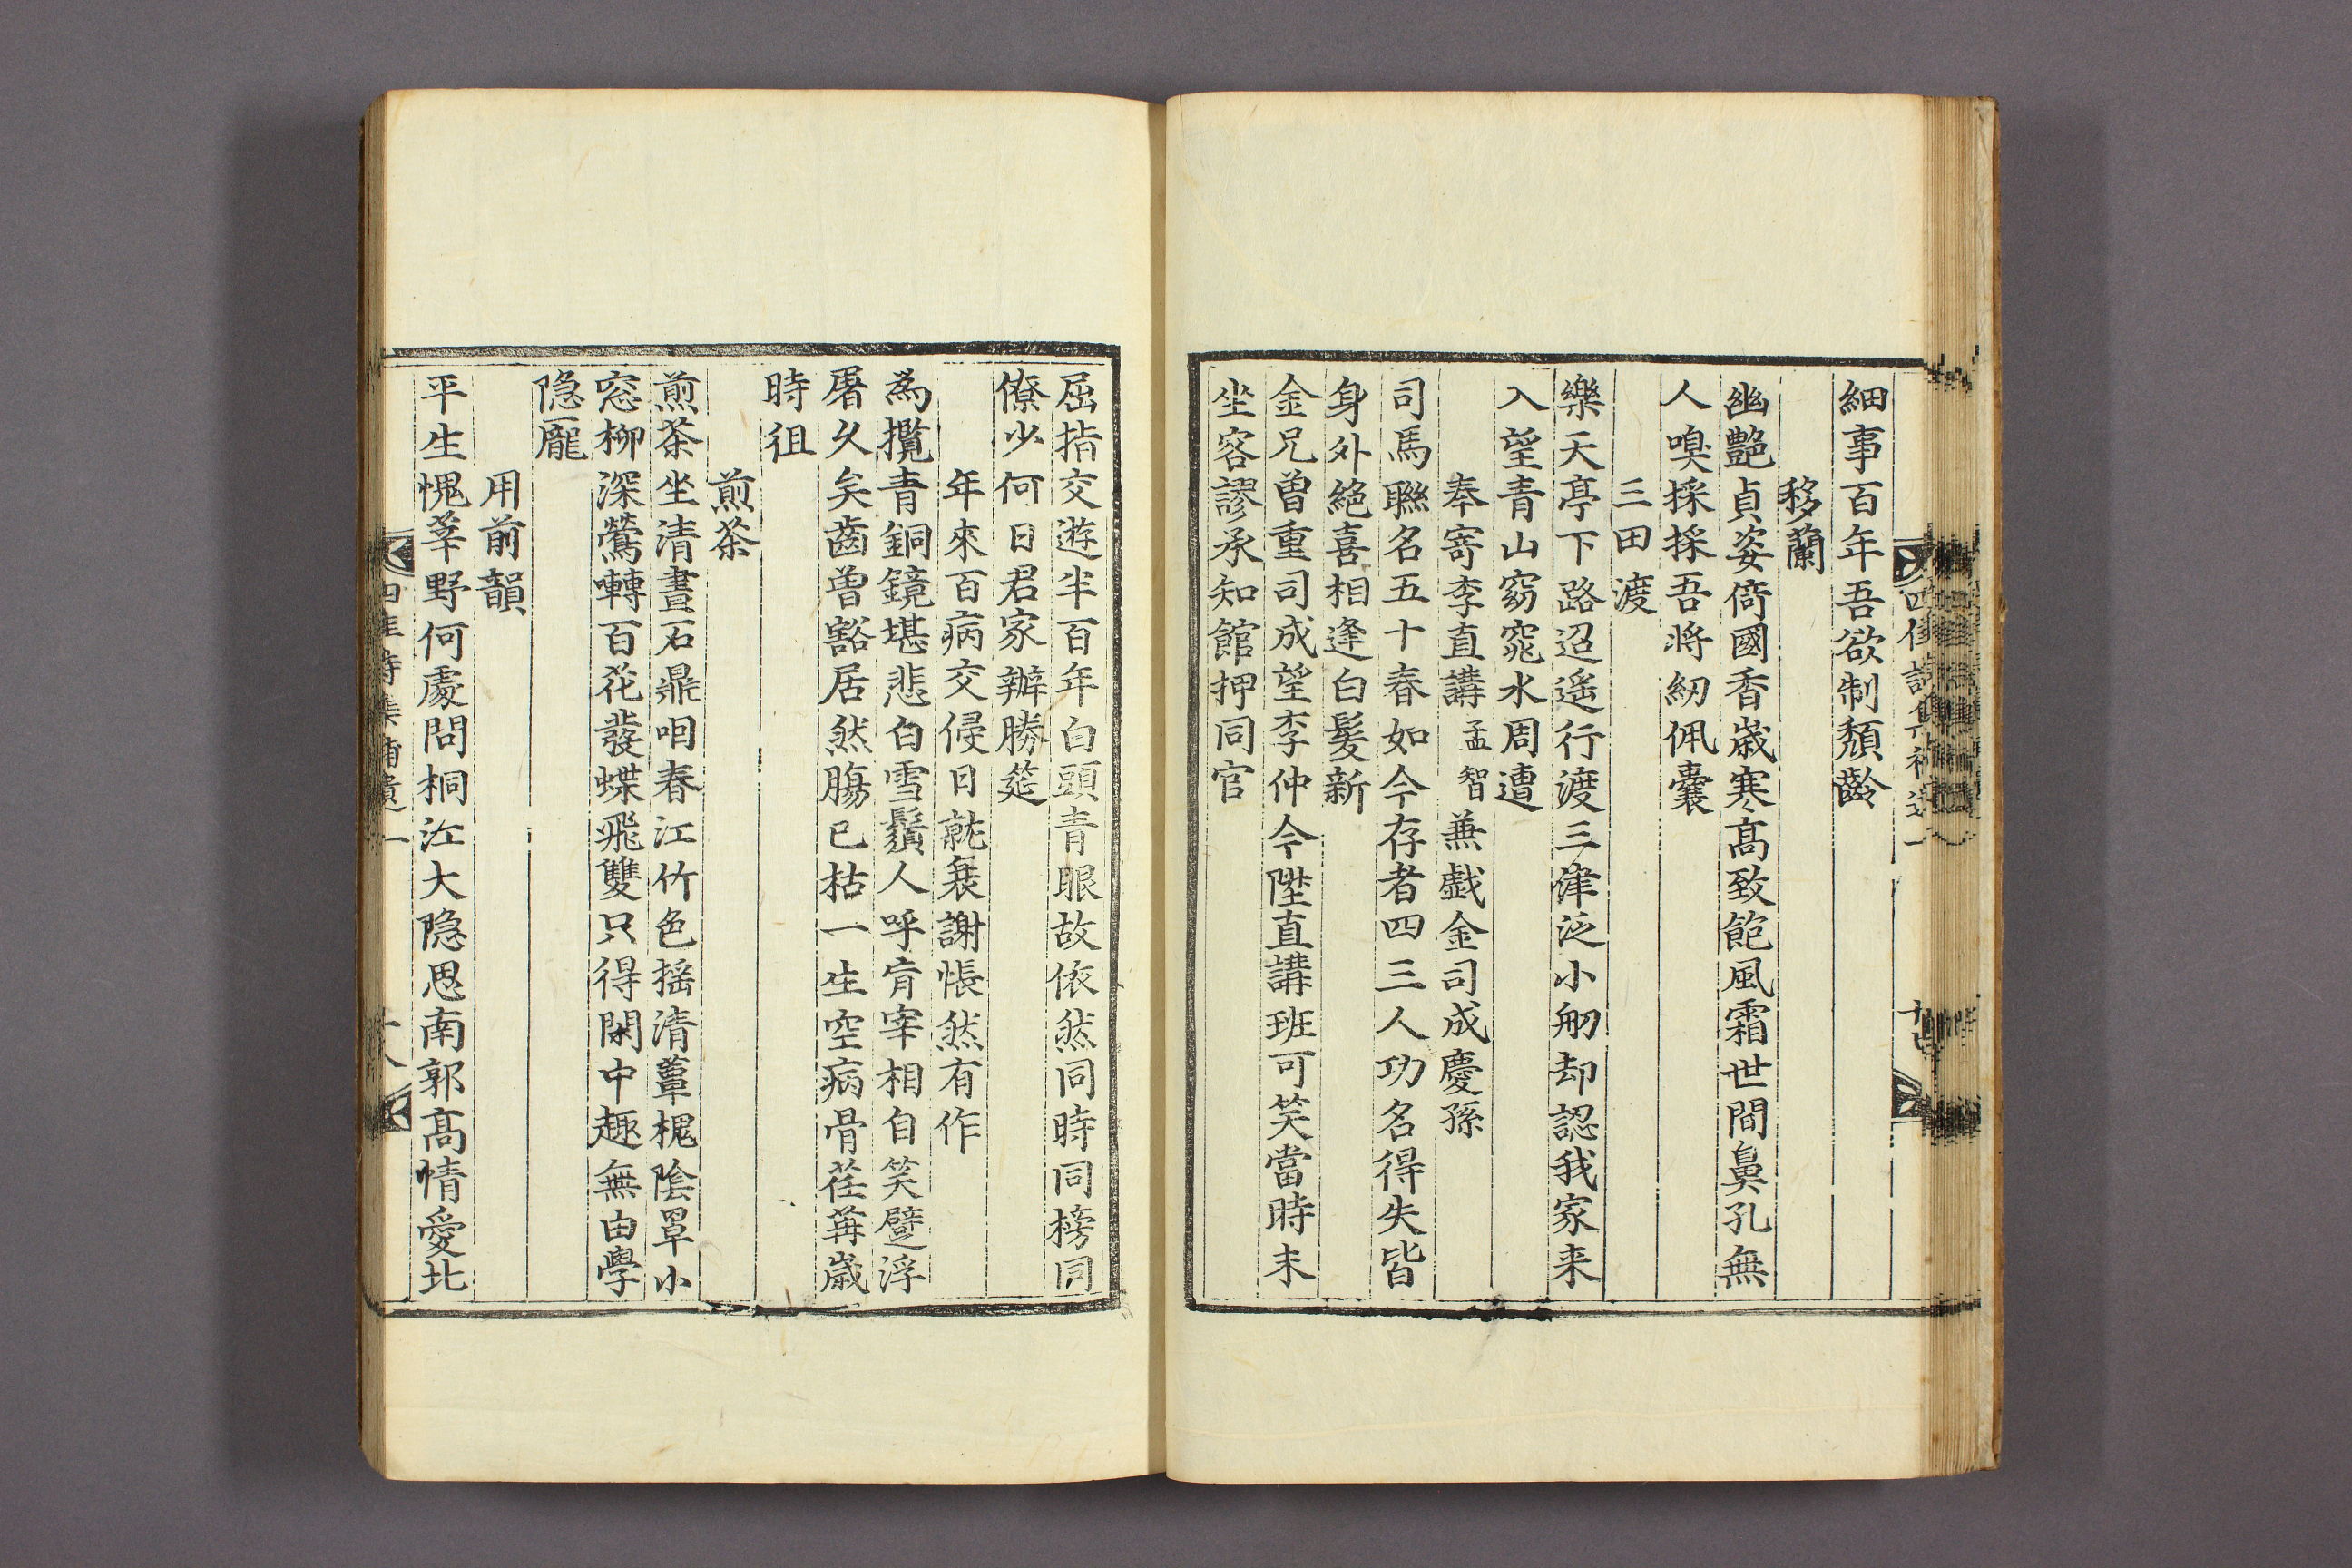 細事百年吾欲制頹齡
移蘭
幽艶貞姿倚國香歲寒高致飽風霜世間鼻孔無
人嗅採採吾將紉佩囊
三田渡
樂天亭下路迢遙行渡三津泛小舠却認我家来
入望青山窈窕水周遭
奉寄李直講孟智兼戱金司成慶孫
司馬聯名五十春如今存者四三人功名得失皆
身外絕喜相逢白髮新
金兄曽重司成望李仲今陞直講班可笑當時未
坐客謬承知館押同官
屈指交遊半百年白頭青眼故依然同時同榜同
僚少何日君家辦勝筵
年來百病交侵日就衰謝悵然有作
爲攬青銅鏡堪悲白雪鬚人呼肯宰相自笑躄浮
屠久矣齒曽豁居然膓已枯一生空病骨荏苒歲
時徂
煎茶
煎茶坐清晝石鼎咽春江竹色搖清簟槐陰罩小
窓柳深鶯囀百花發蝶飛雙只得閑中趣無由學
隐龐
用前韻
平生愧莘野何處問桐江大隐思南郭高情愛北
四佳詩集補遺一
十八